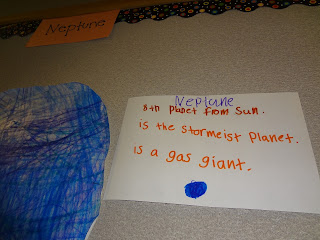 Neptune
Neptune
8th planet from Sun.
is the stormeist planet.
is a gas giant.